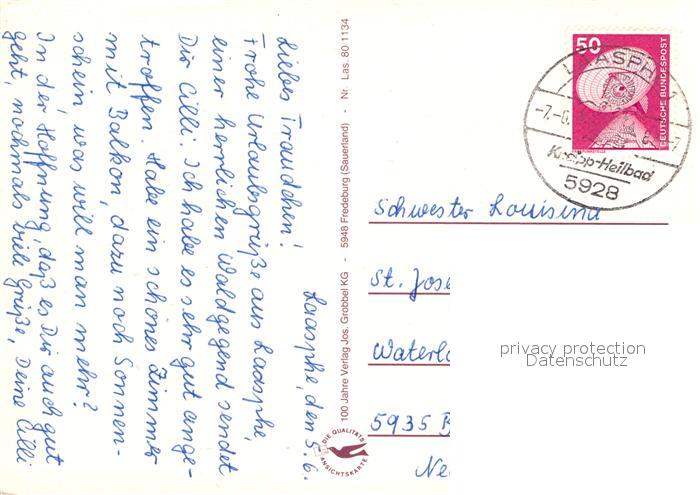 Laasphe, den 5.6.
Liebes Traudchen!
Frohe Urlaubsgrüße aus Laasphe,
einer herrlichen Waldgegend sendet
Dir Cilli. Ich habe es sehr gut ange-
troffen. Habe ein schönes Zimmer
mit Balkon, dazu noch Sonnen-
schein, was will man mehr?
In der Hoffnung, daß es Dir auch gut
geht, nochmals viele Grüße, Deine Cilli
100 Jahre Verlag Jos. Grobbel KG - 5948 Fredeburg (Sauerland) - Nr. Las. 80 1134
DIE QUALITÄTS
ANSICHTSKARTE
50
DEUTSCHE BUNDESPOST
LAASPHE
-7.-6.
Kneipp-Heilbad
5928
Schwester Louisina
St. Jose
Waterlo
5935 B
Ne
privacy protection
Datenschutz